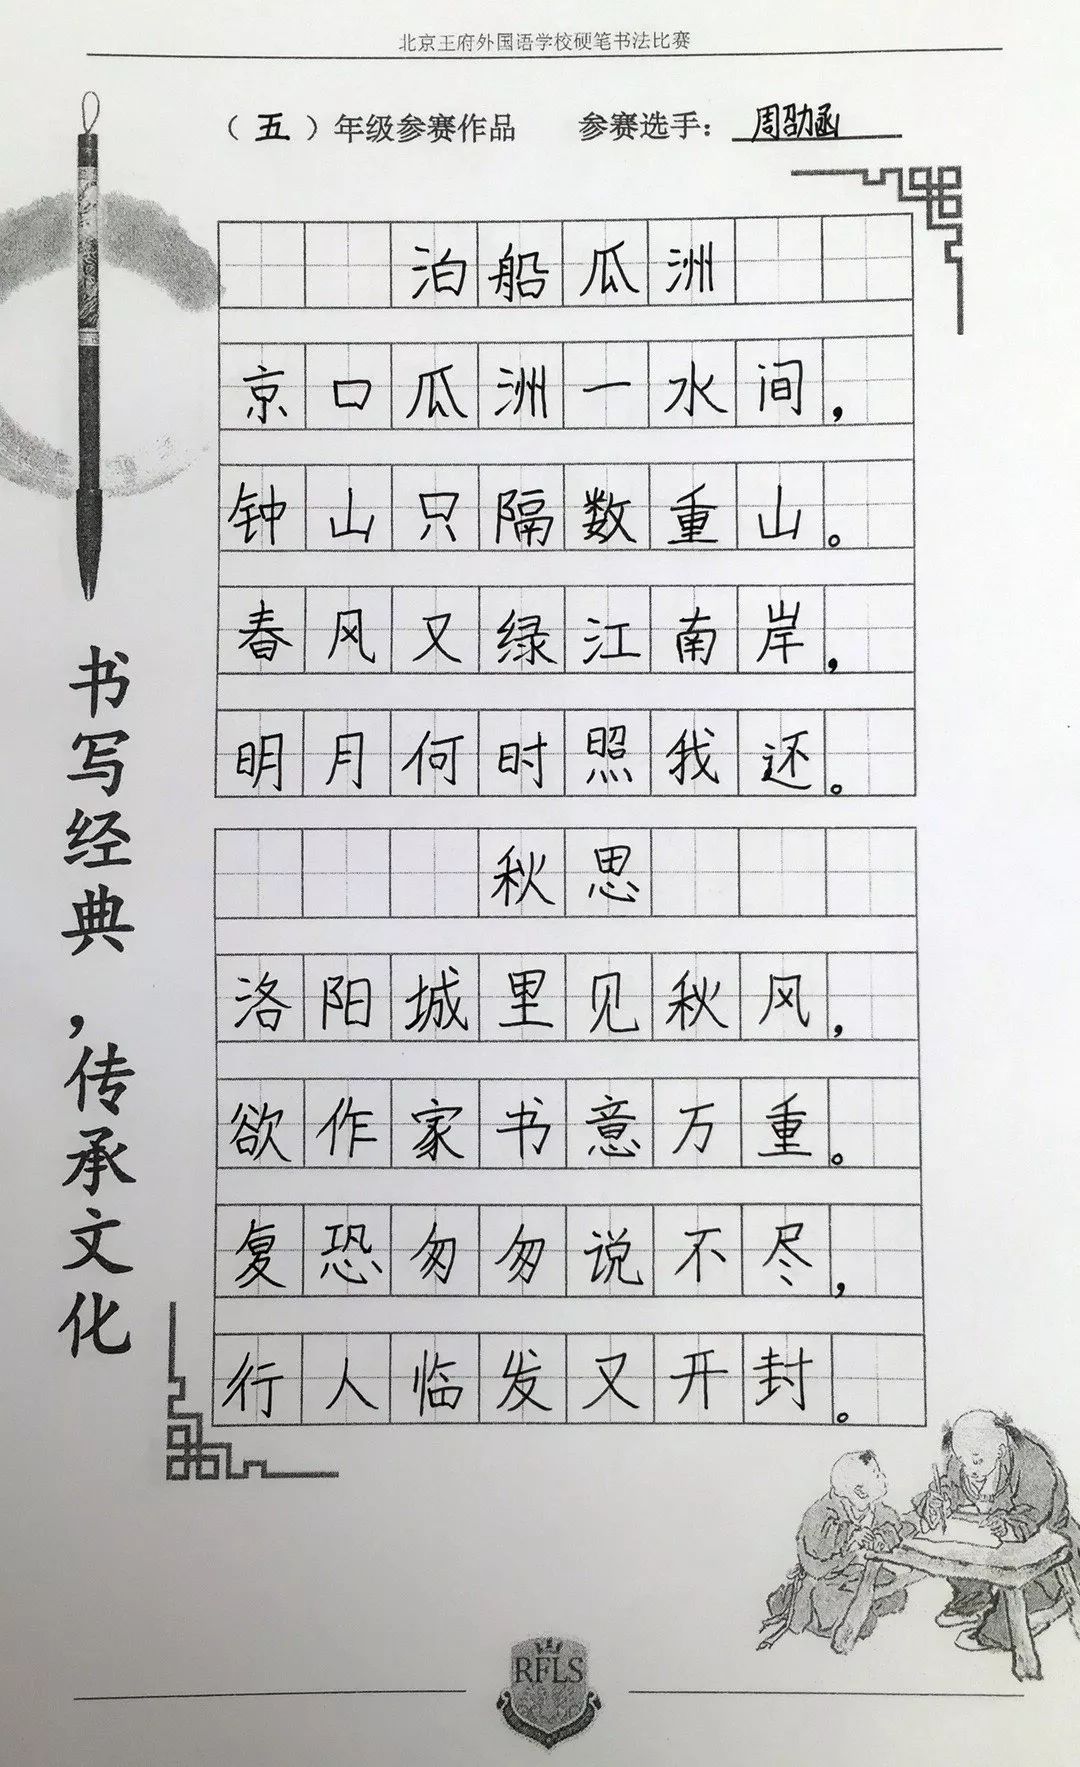 北京王府外国语学校硬笔书法比赛
（五）年级参赛作品 参赛选手：周劭函
泊船瓜洲
京口瓜洲一水间，
钟山只隔数重山。
春风又绿江南岸，
明月何时照我还。
秋思
洛阳城里见秋风，
欲作家书意万重。
复恐匆匆说不尽，
行人临发又开封。
书写经典，传承文化
RFLS